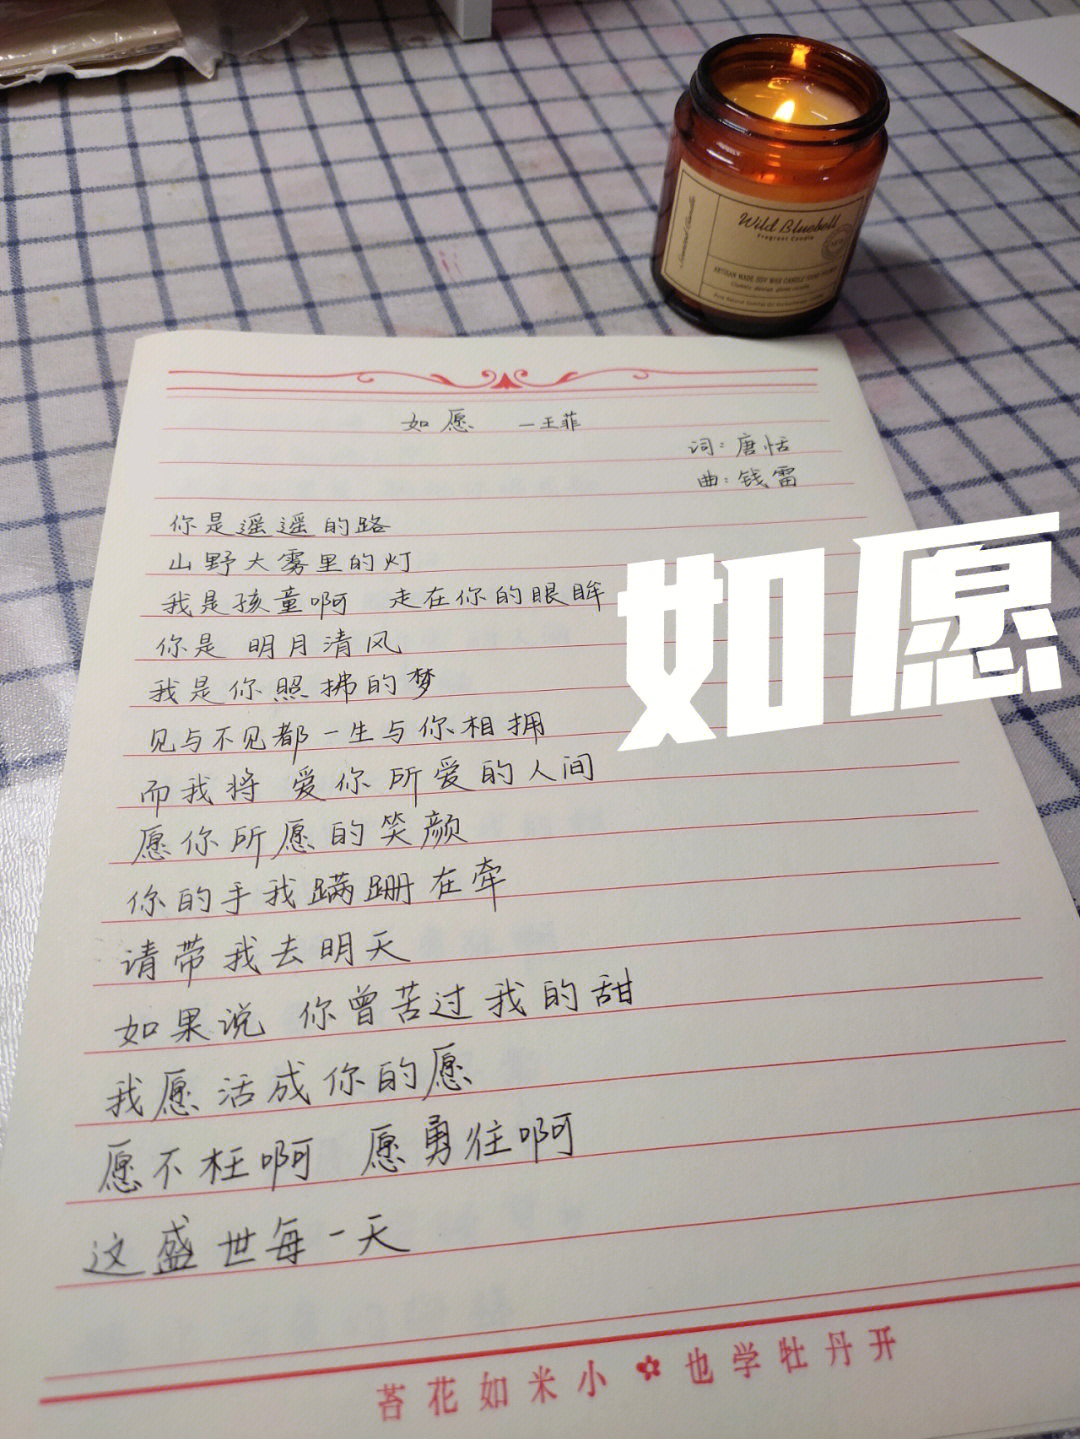 Wild Bluebell
Fragrant Candle
ARTISAN MADE SOY WAX CANDLE
如愿 一王菲
词：唐恬
曲：钱雷
你是遥遥的路
山野大雾里的灯
我是孩童啊 走在你的眼眸
你是 明月清风
我是你照拂的梦
见与不见都一生与你相拥
而我将 爱你所爱的人间
愿你所愿的笑颜
你的手我蹒跚在牵
请带我去明天
如果说 你曾苦过我的甜
我愿活成你的愿
愿不枉啊 愿勇往啊
这盛世每一天
如愿
苔花如米小 也学牡丹开